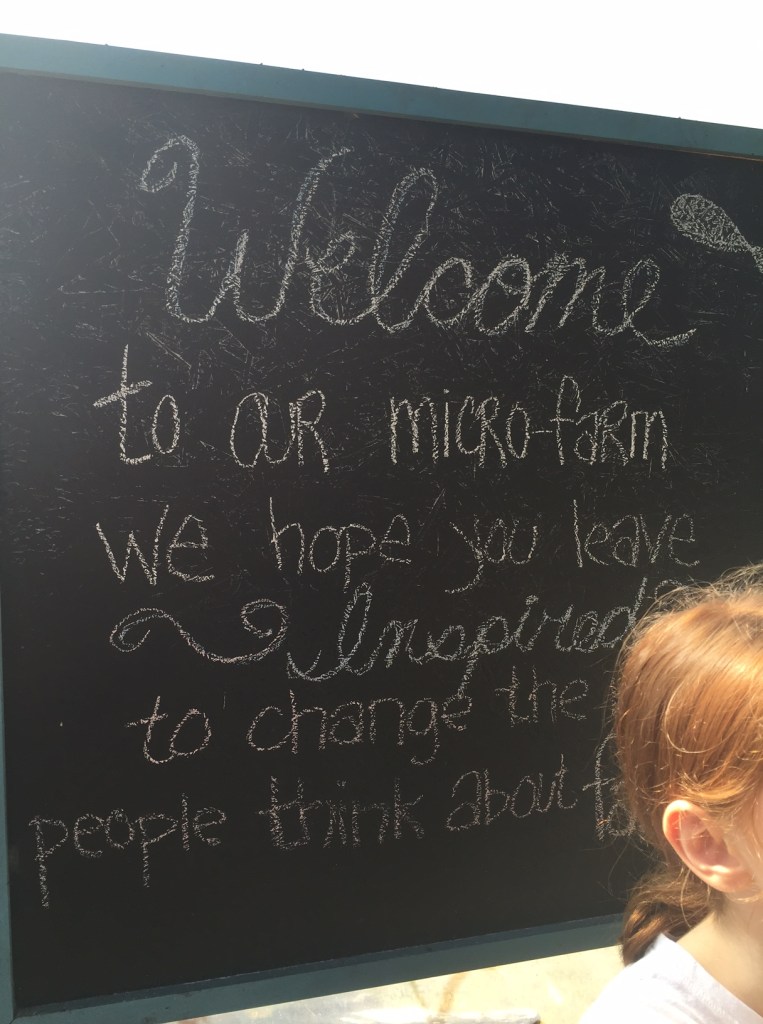 Welcome
to our micro-farm
we hope you leave
Inspired
to change the
people think about